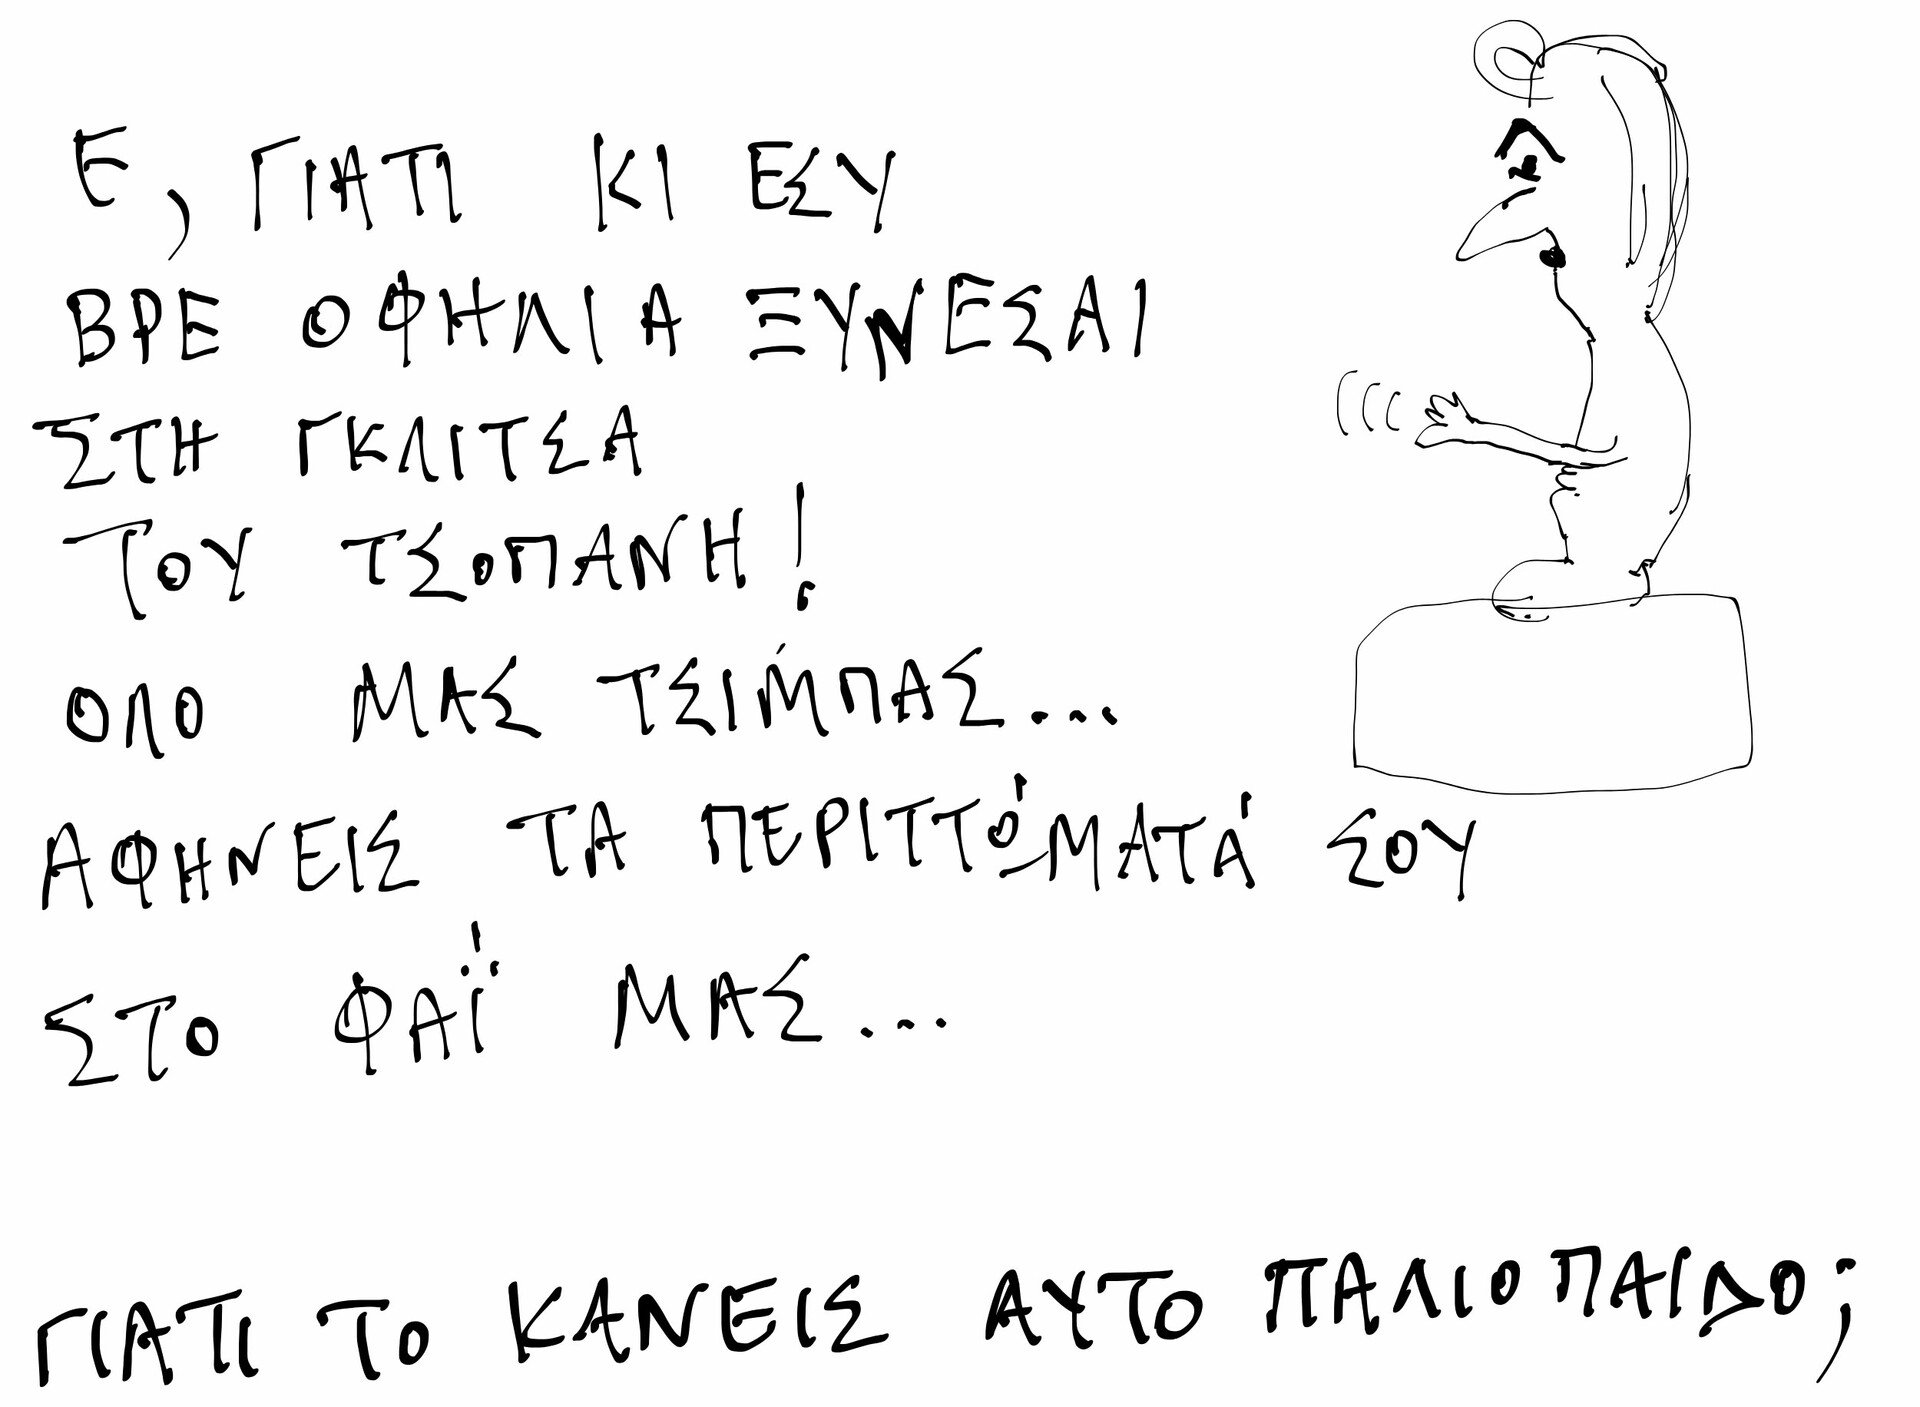 Ε, ΓΙΑΤΙ ΚΙ ΕΣΥ
ΒΡΕ ΟΦΗΛΙΑ ΞΥΝΕΣΑΙ
ΣΤΗ ΓΚΛΙΤΣΑ
ΤΟΥ ΤΣΟΠΑΝΗ!
ΟΛΟ ΜΑΣ ΤΣΙΜΠΑΣ...
ΑΦΗΝΕΙΣ ΤΑ ΠΕΡΙΤΤΏΜΑΤΆ ΣΟΥ
ΣΤΟ ΦΑΪ́ ΜΑΣ...
ΓΙΑΤΙ ΤΟ ΚΑΝΕΙΣ ΑΥΤΟ ΠΑΛΙΟΠΑΙΔΟ;